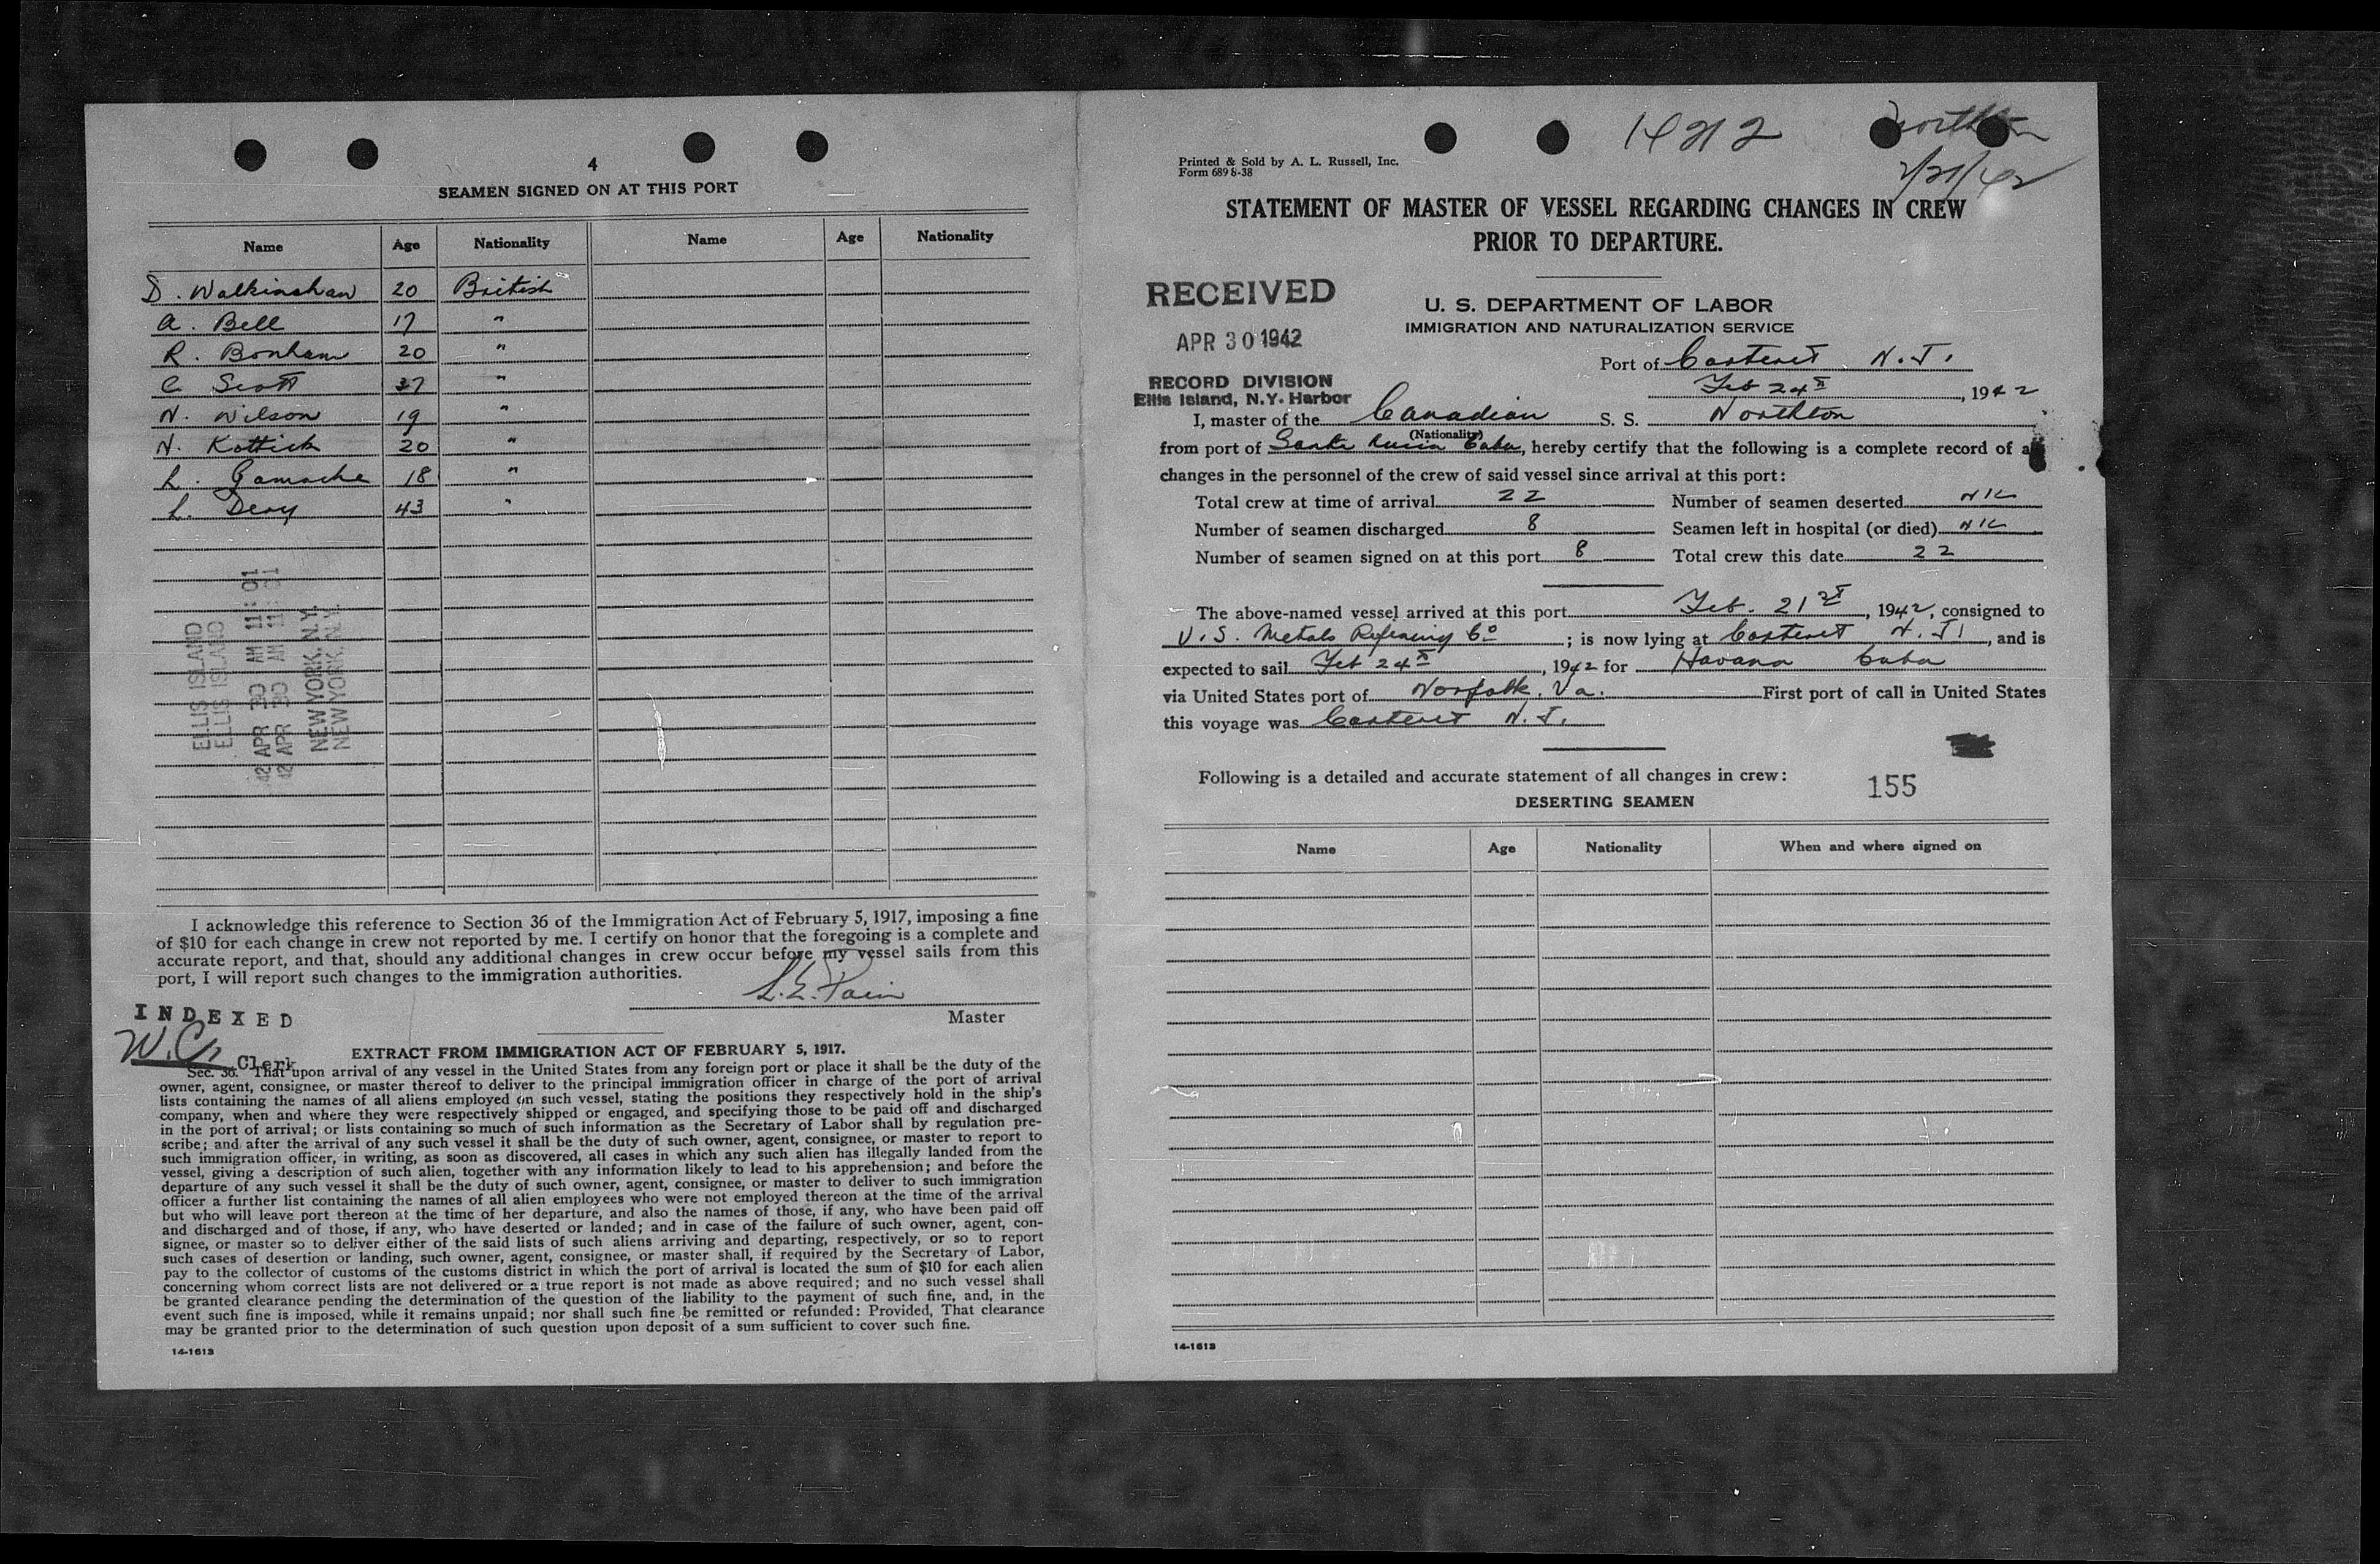 4
SEAMEN SIGNED ON AT THIS PORT
Name Age Nationality Name Age Nationality
D. Walkinshaw 20 British
A. Bell 17 "
R. Bonham 20 "
C Scott 37 "
N. Wilson 19 "
N. Kottick 20 "
L. Gamache 18 "
L. Dery 43 "
ELLIS ISLAND
ELLIS ISLAND
42 APR 30 AM 11:01
42 APR 30 AM 11:01
NEW YORK, N.Y.
NEW YORK, N.Y.
I acknowledge this reference to Section 36 of the Immigration Act of February 5, 1917, imposing a fine
of $10 for each change in crew not reported by me. I certify on honor that the foregoing is a complete and
accurate report, and that, should any additional changes in crew occur before my vessel sails from this
port, I will report such changes to the immigration authorities.
L.E. Pain
Master
INDEXED
W.C. Clerk
EXTRACT FROM IMMIGRATION ACT OF FEBRUARY 5, 1917.
Sec. 36. That upon arrival of any vessel in the United States from any foreign port or place it shall be the duty of the
owner, agent, consignee, or master thereof to deliver to the principal immigration officer in charge of the port of arrival
lists containing the names of all aliens employed on such vessel, stating the positions they respectively hold in the ship's
company, when and where they were respectively shipped or engaged, and specifying those to be paid off and discharged
in the port of arrival; or lists containing so much of such information as the Secretary of Labor shall by regulation pre-
scribe; and after the arrival of any such vessel it shall be the duty of such owner, agent, consignee, or master to report to
such immigration officer, in writing, as soon as discovered, all cases in which any such alien has illegally landed from the
vessel, giving a description of such alien, together with any information likely to lead to his apprehension; and before the
departure of any such vessel it shall be the duty of such owner, agent, consignee, or master to deliver to such immigration
officer a further list containing the names of all alien employees who were not employed thereon at the time of the arrival
but who will leave port thereon at the time of her departure, and also the names of those, if any, who have been paid off
and discharged and of those, if any, who have deserted or landed; and in case of the failure of such owner, agent, con-
signee, or master so to deliver either of the said lists of such aliens arriving and departing, respectively, or so to report
such cases of desertion or landing, such owner, agent, consignee, or master shall, if required by the Secretary of Labor,
pay to the collector of customs of the customs district in which the port of arrival is located the sum of $10 for each alien
concerning whom correct lists are not delivered or a true report is not made as above required; and no such vessel shall
be granted clearance pending the determination of the question of the liability to the payment of such fine, and, in the
event such fine is imposed, while it remains unpaid; nor shall such fine be remitted or refunded: Provided, That clearance
may be granted prior to the determination of such question upon deposit of a sum sufficient to cover such fine.
14-1613
4212 Northton
2/21/42
Printed & Sold by A. L. Russell, Inc.
Form 689 8-38
STATEMENT OF MASTER OF VESSEL REGARDING CHANGES IN CREW
PRIOR TO DEPARTURE.
RECEIVED
APR 30 1942
RECORD DIVISION
Ellis Island, N.Y. Harbor
U. S. DEPARTMENT OF LABOR
IMMIGRATION AND NATURALIZATION SERVICE
Port of Carteret N.J.
Feb 24th, 1942
I, master of the Canadian S. S. Northton
(Nationality)
from port of Santa Lucia Cuba, hereby certify that the following is a complete record of all
changes in the personnel of the crew of said vessel since arrival at this port:
Total crew at time of arrival 22 Number of seamen deserted Nil
Number of seamen discharged 8 Seamen left in hospital (or died) Nil
Number of seamen signed on at this port 8 Total crew this date 22
The above-named vessel arrived at this port Feb. 21st, 1942, consigned to
U.S. Metals Refining Co; is now lying at Carteret N.J., and is
expected to sail Feb 24th, 1942 for Havana Cuba
via United States port of Norfolk, Va. First port of call in United States
this voyage was Carteret N.J.
Following is a detailed and accurate statement of all changes in crew:
155
DESERTING SEAMEN
Name Age Nationality When and where signed on
14-1613